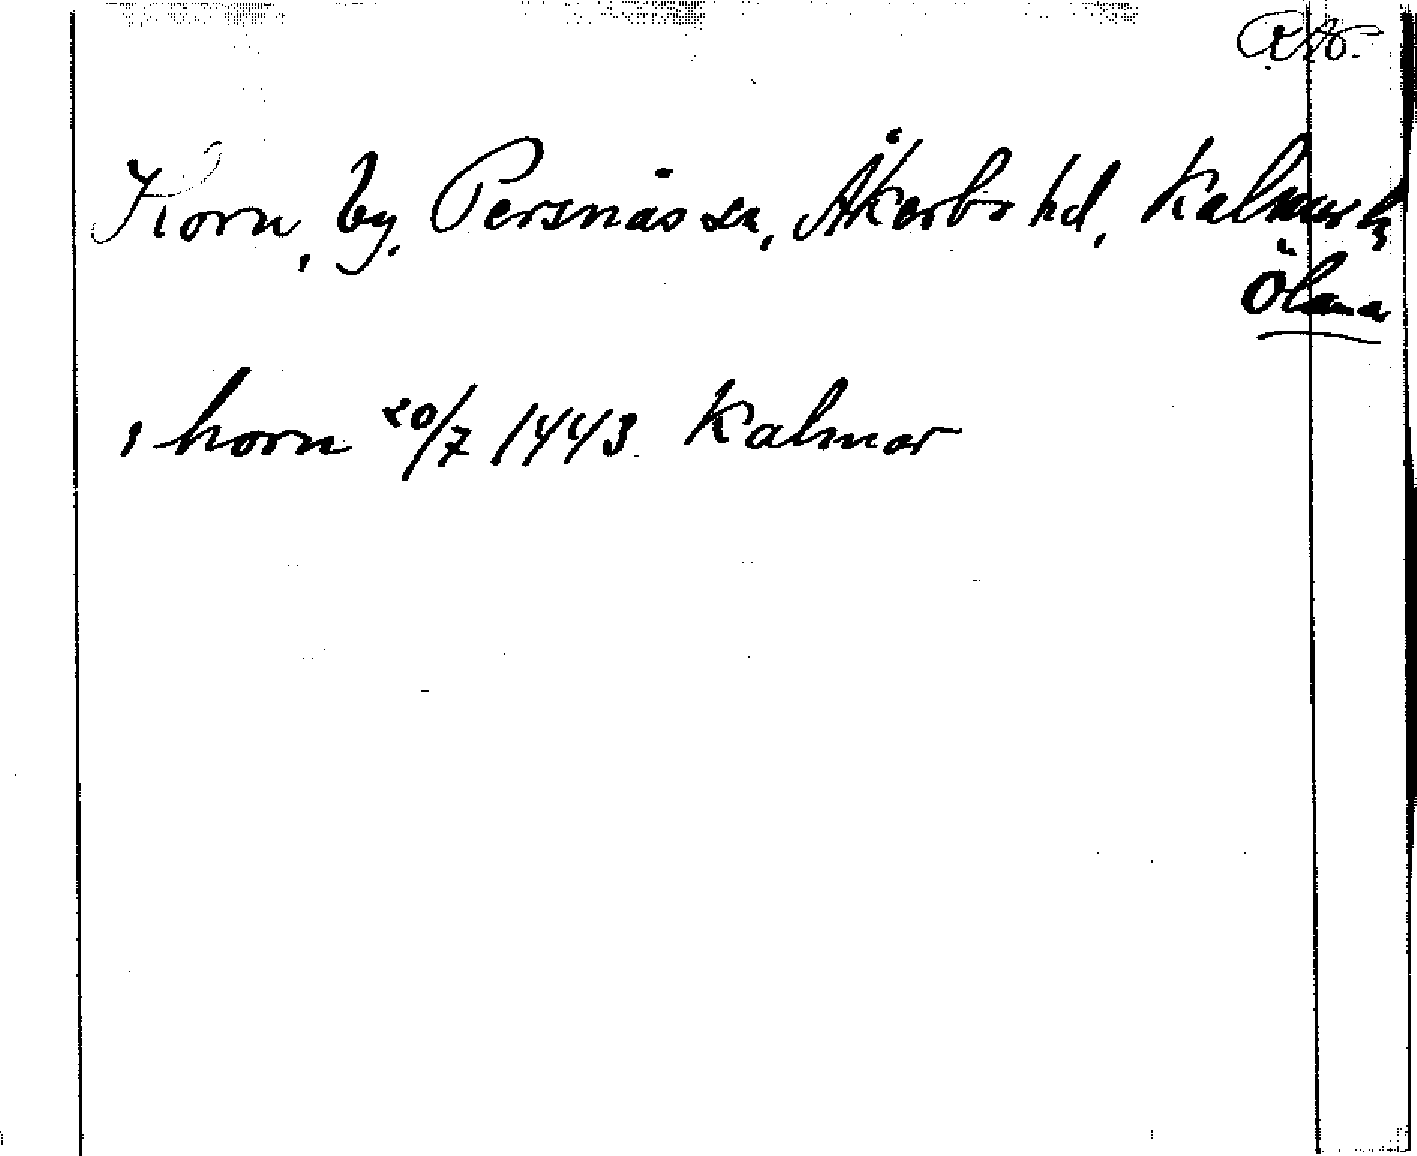 RAp.
Horn, by, Persnäs sn, Åkerbo hd, Kalmar l.
Öland
i horn 20/7 1443 Kalmar